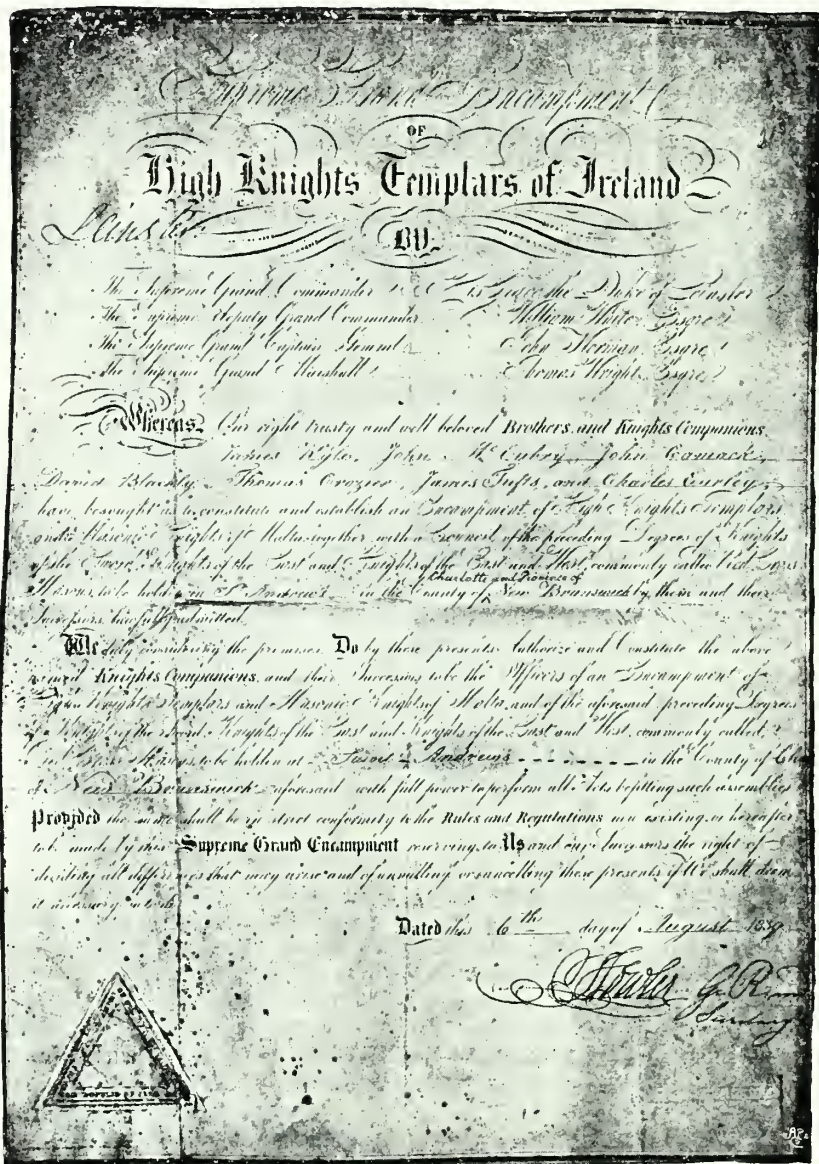 Supreme Grand Encampment
OF
High Knights Templars of Ireland
Leinster
BY
The Supreme Grand Commander His Grace the Duke of Leinster
The Supreme Deputy Grand Commander William White Esqre
The Supreme Grand Captain General John Norman Esqre
The Supreme Grand Marshall Thomas Wright Esqre
Whereas Our right trusty and well beloved Brothers and Knights Companions
James Kyle, John John
David Thomas Crozier, James Tufts, and Charles
have besought us to constitute and establish an Encampment of High Knights Templars
and Masonic Knights of Malta together with a Council of the preceding Degrees of Knights
of the Sword, Knights of the East and Knights of the East and West, commonly called Red Cross
Charlotte and Province of
Masons to be held in St Andrews in the County of New Brunswick by them and their
Successors lawfully admitted.
We duly considering the premises Do by these presents Authorize and Constitute the above
named Knights Companions, and their Successors to be the Officers of an Encampment of
High Knights Templars and Masonic Knights of Malta and of the aforesaid preceding Degrees
Knights of the Sword, Knights of the East and Knights of the East and West, commonly called
Red Cross Masons to be holden at Saint Andrews in the County of
of New Brunswick aforesaid with full power to perform all Acts befitting such assemblies
Provided the same shall be in strict conformity to the Rules and Regulations now existing or hereafter
to be made by this Supreme Grand Encampment reserving to Us and our Successors the right of
deciding all differences that may arise and of annulling or cancelling these presents if We shall deem
it necessary
Dated this 6th day of August
Fowler G.